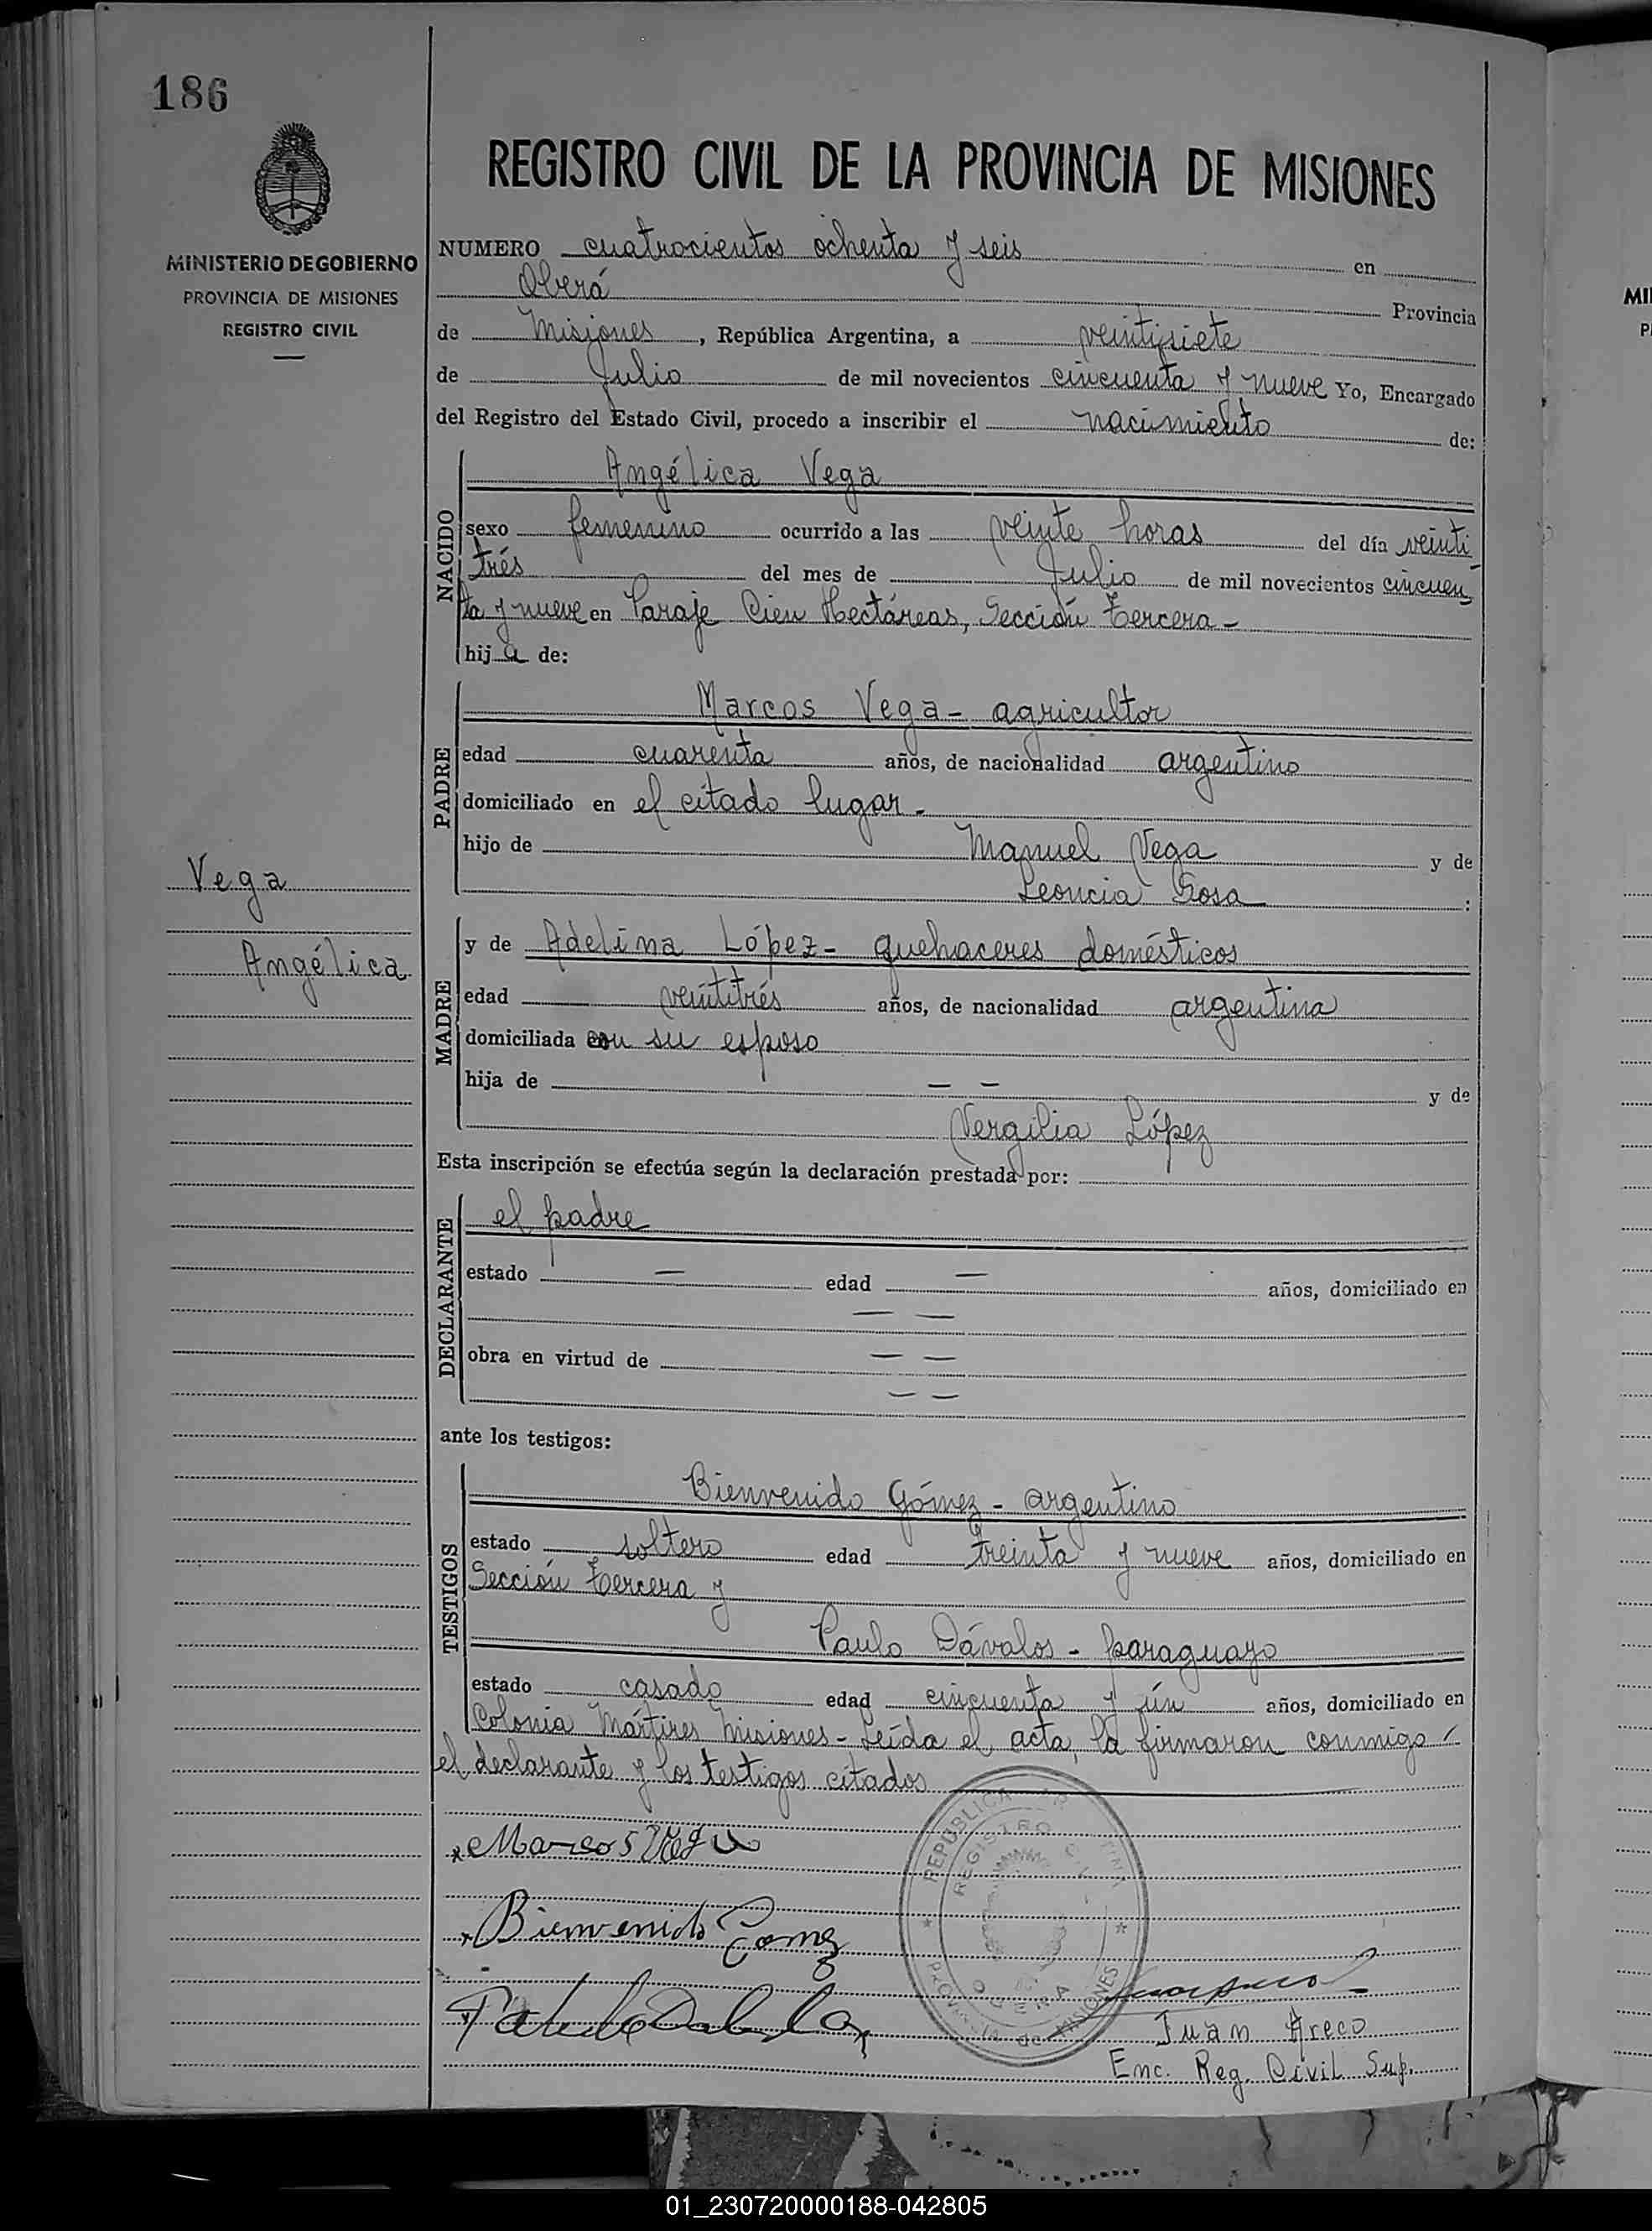 186
MINISTERIO DE GOBIERNO
PROVINCIA DE MISIONES
REGISTRO CIVIL
Vega
Angélica
REGISTRO CIVIL DE LA PROVINCIA DE MISIONES
NUMERO cuatrocientos ochenta y seis en
Oberá Provincia
de Misiones, República Argentina, a veintisiete
de Julio de mil novecientos cincuenta y nueve Yo, Encargado
del Registro del Estado Civil, procedo a inscribir el nacimiento de:
NACIDO
Angélica Vega
sexo femenino ocurrido a las veinte horas del día veinti
trés del mes de Julio de mil novecientos cincuen
ta y nueve en Paraje Cien Hectáreas, Sección Tercera -
hija de:
PADRE
Marcos Vega - agricultor
edad cuarenta años, de nacionalidad argentino
domiciliado en el citado lugar -
hijo de Manuel Vega y de
Leoncia Sosa :
MADRE
y de Adelina López - quehaceres domésticos
edad veintitrés años, de nacionalidad argentina
domiciliada con su esposo
hija de — — y de
Vergilia López
Esta inscripción se efectúa según la declaración prestada por:
DECLARANTE
el padre
estado — edad — años, domiciliado en
— —
obra en virtud de — —
— —
ante los testigos:
TESTIGOS
Bienvenido Gómez - argentino
estado soltero edad treinta y nueve años, domiciliado en
Sección Tercera y
Paulo Dávalos - paraguayo
estado casado edad cincuenta y ún años, domiciliado en
Colonia Mártires Misiones - Leída el acta, la firmaron conmigo
el declarante y los testigos citados
Marcos Vega
Bienvenido Gomez
REPUBLICA
REGISTRO CIVIL
OBERA
PROVINCIA DE MISIONES
Juan Areco
Enc. Reg. Civil Sup.
MI
P
01_230720000188-042805